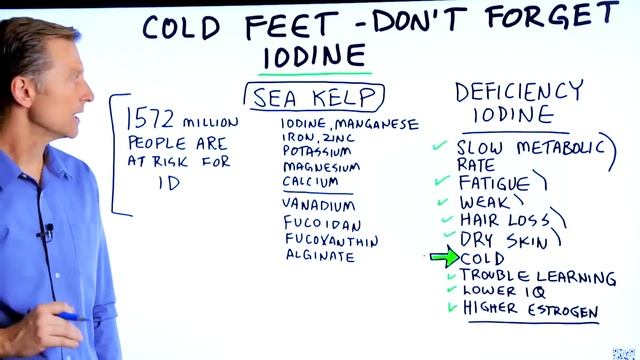 COLD FEET - DON'T FORGET
IODINE
1572 MILLION
PEOPLE ARE
AT RISK FOR
ID
SEA KELP
IODINE, MANGANESE
IRON, ZINC
POTASSIUM
MAGNESIUM
CALCIUM
VANADIUM
FUCOIDAN
FUCOXANTHIN
ALGINATE
DEFICIENCY
IODINE
SLOW METABOLIC
RATE
FATIGUE
WEAK
HAIR LOSS
DRY SKIN
COLD
TROUBLE LEARNING
LOWER IQ
HIGHER ESTROGEN